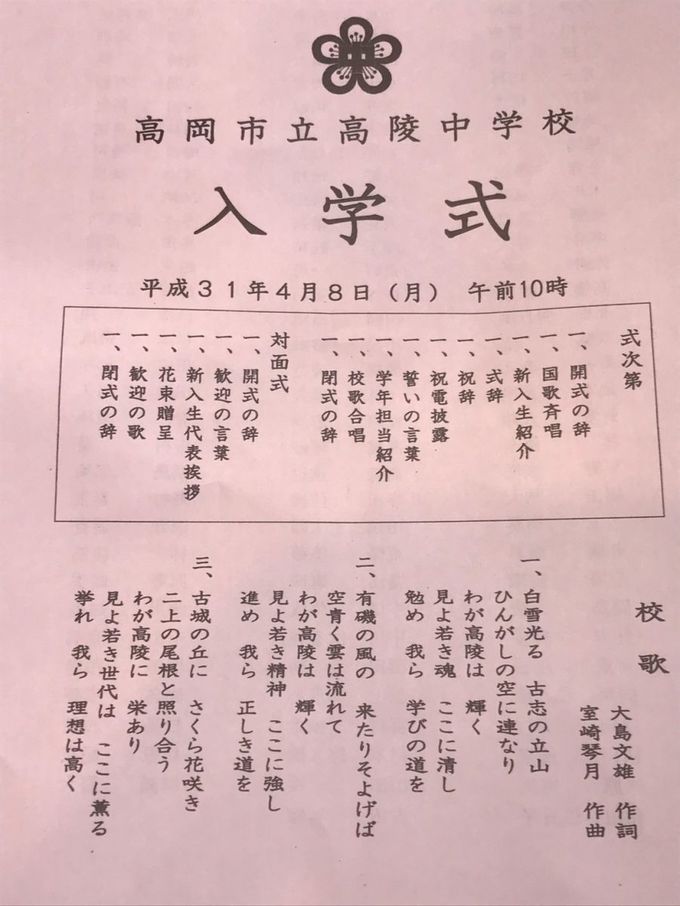 高岡市立高陵中学校
入学式
平成31年4月8日（月）　午前10時
式次第
一、開式の辞
一、国歌斉唱
一、新入生紹介
一、式辞
一、祝辞
一、祝電披露
一、誓いの言葉
一、学年担当紹介
一、校歌合唱
一、閉式の辞
対面式
一、開式の辞
一、歓迎の言葉
一、新入生代表挨拶
一、花束贈呈
一、歓迎の歌
一、閉式の辞
校歌
大島文雄　作詞
室崎琴月　作曲
一、白雪光る　古志の立山
ひんがしの空に連なり
わが高陵は　輝く
見よ若き魂　ここに清し
勉め　我ら　学びの道を
二、有磯の風の　来たりそよげば
空青く雲は流れて
わが高陵は　輝く
見よ若き精神　ここに強し
進め　我ら　正しき道を
三、古城の丘に　さくら花咲き
二上の尾根と照り合う
わが高陵に　栄あり
見よ若き世代は　ここに薫る
挙れ　我ら　理想は高く